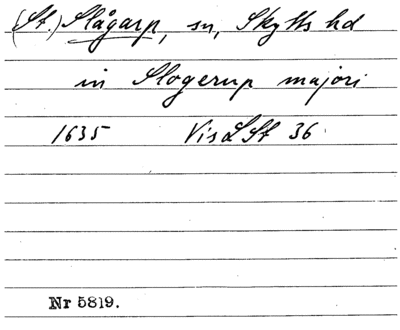 (St.) Slågarp, sn, Skytts hd
in Slogerup majori
1635 Vis L St 36
Nr 5819.